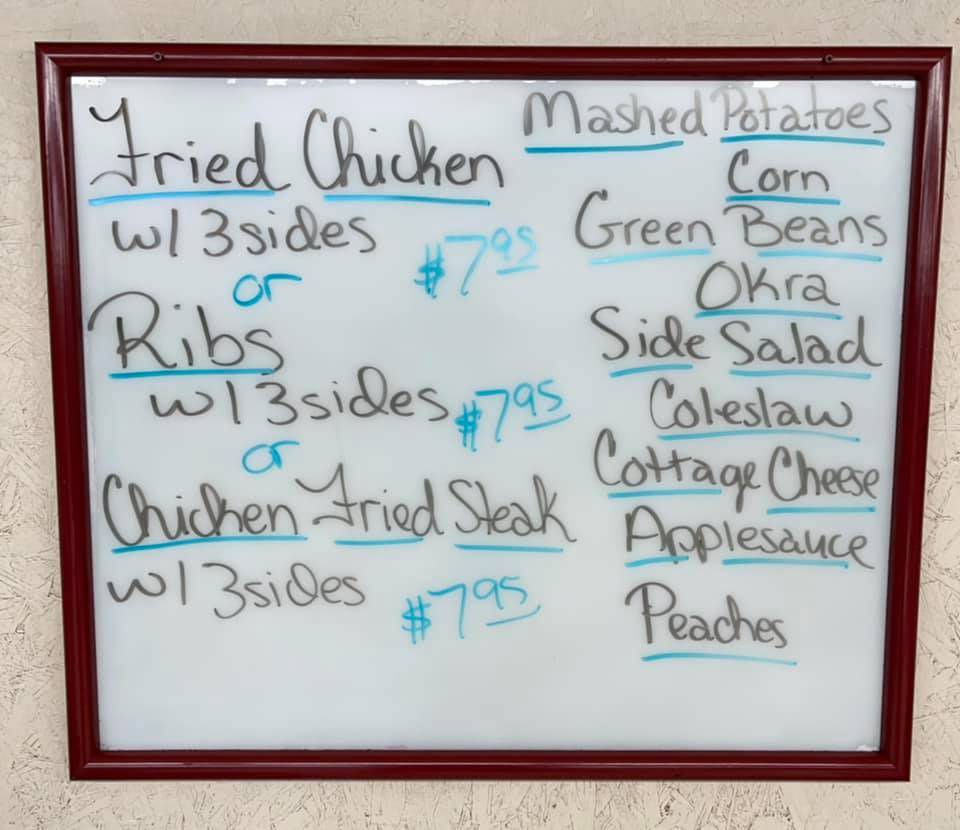 Fried Chicken
w/ 3 sides
$7.95
or
Ribs
w/ 3 sides $7.95
or
Chicken Fried Steak
w/ 3 sides $7.95
Mashed Potatoes
Corn
Green Beans
Okra
Side Salad
Coleslaw
Cottage Cheese
Applesauce
Peaches